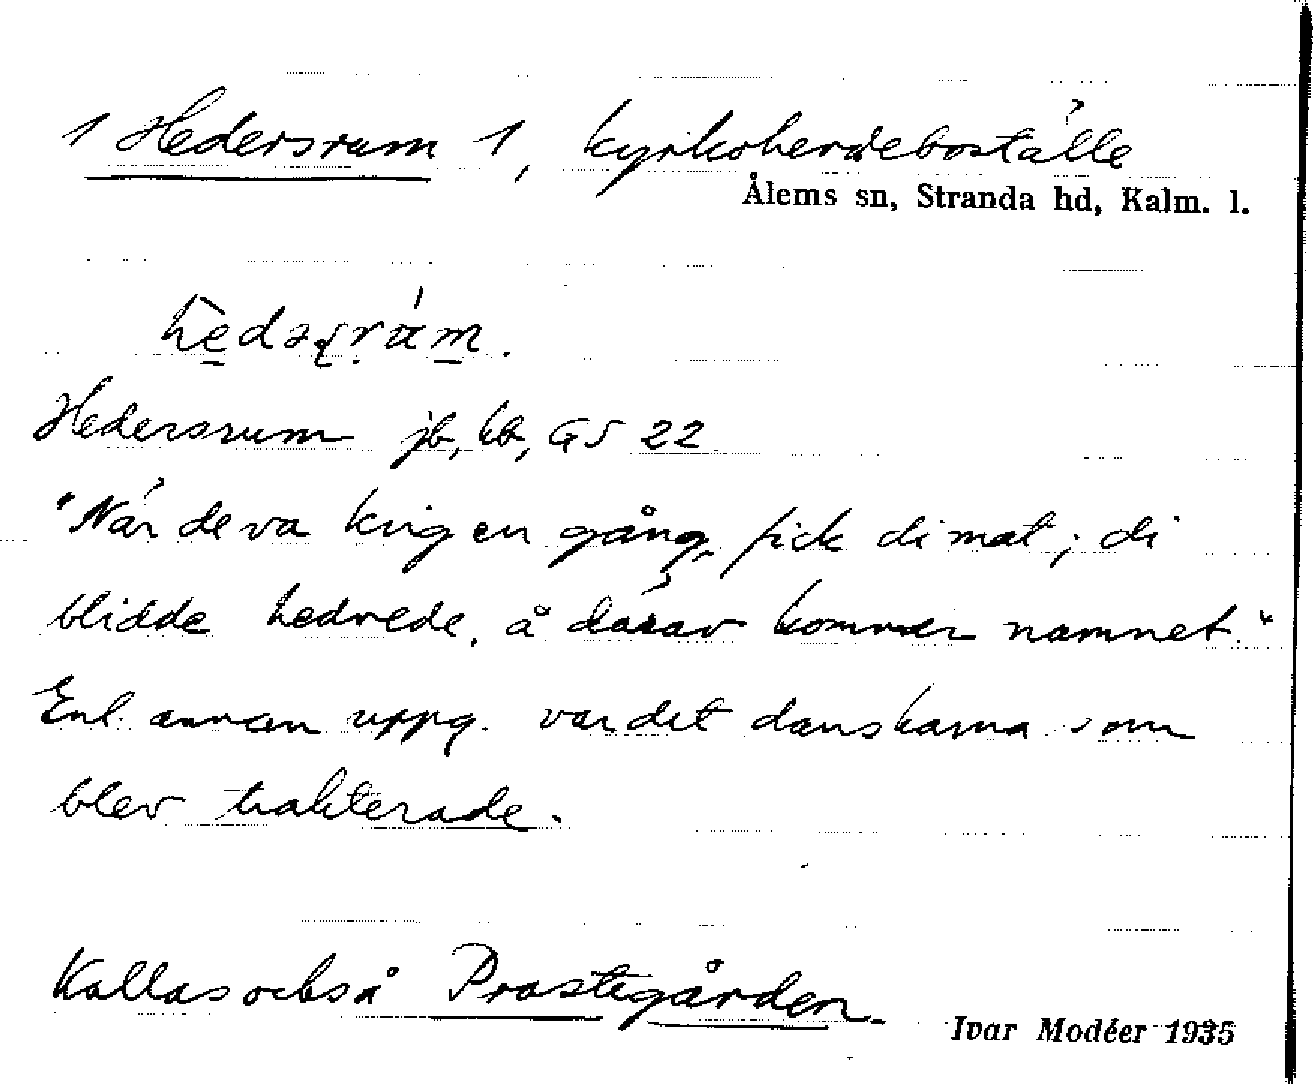 1 Hedersrum 1, kyrkoherdeboställe
Ålems sn, Stranda hd, Kalm. l.
Hedersrum jb, kb, GS 22
"När de va krig en gång, fick di mat; di
blidde hedrede, å därav kommer namnet."
Enl. annan uppg. var det danskarna som
blev trakterade.
Kallas också Prostegården.
Ivar Modéer 1935